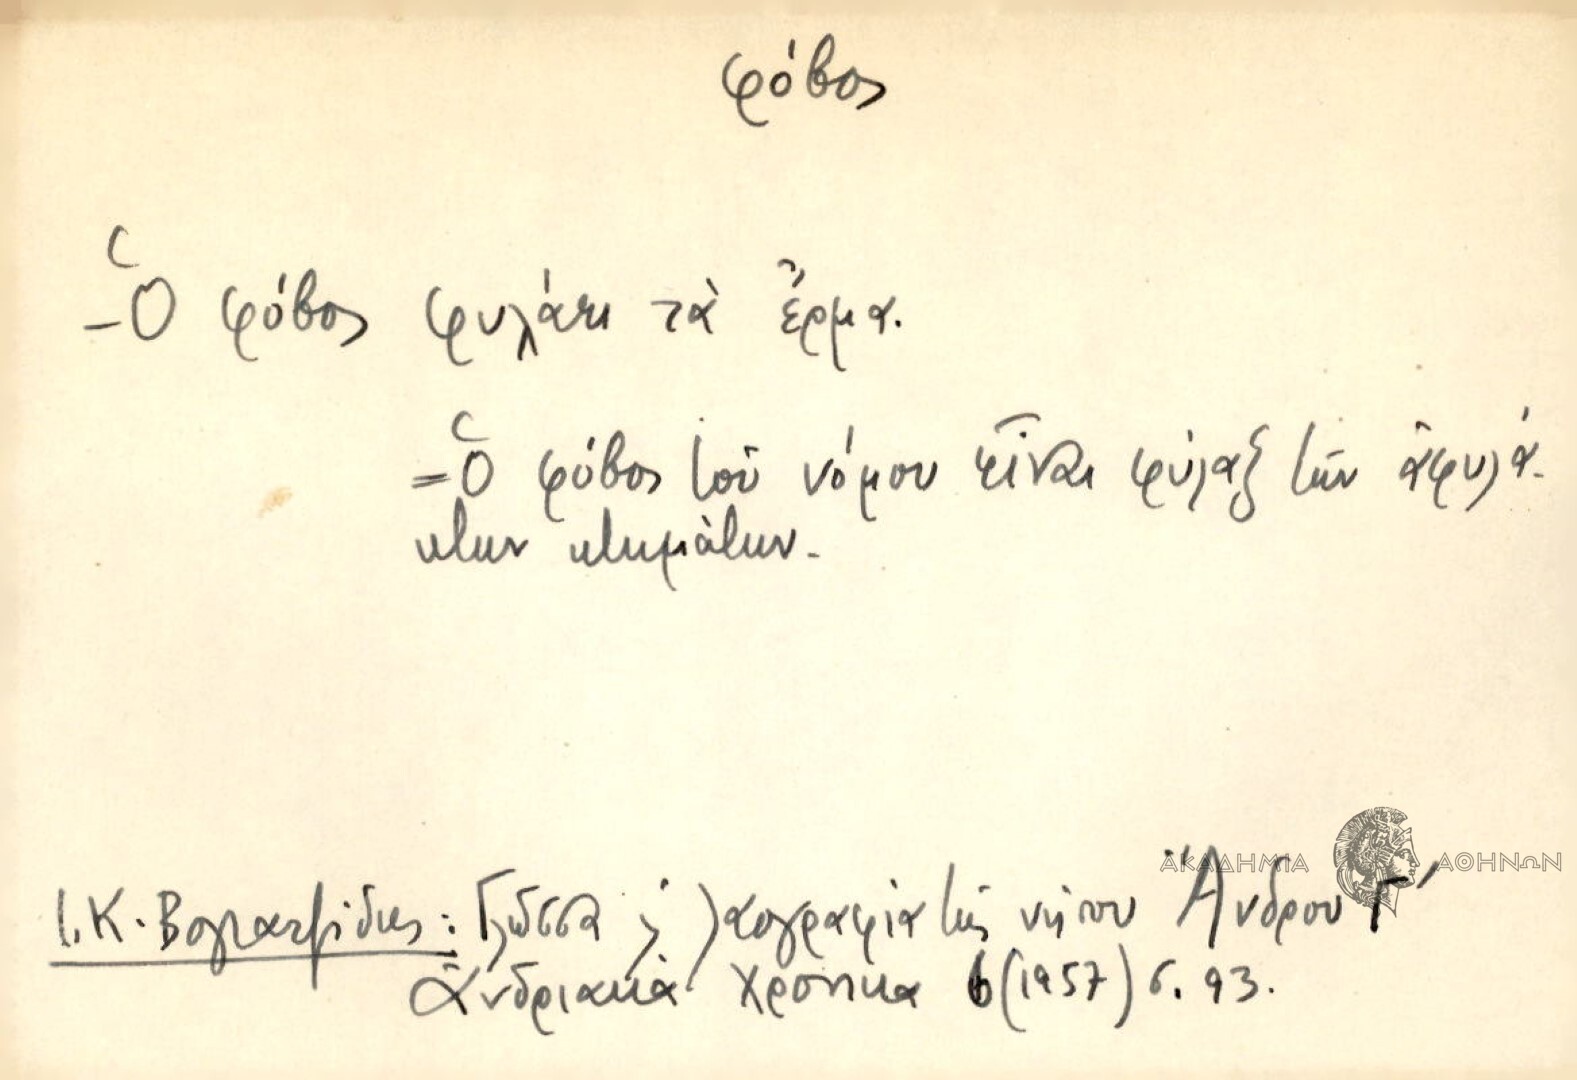 φόβος
-Ὁ φόβος φυλάει τὰ ἔρμα.
=Ὁ φόβος τοῦ νόμου εἶναι φύλαξ τῶν ἀφυλά-
κτων κτημάτων.-
Ι.Κ. Βογιατζίδης: Γλῶσσα κ' λαογραφία τῆς νήσου Ἄνδρου Γ'
Ἀνδριακὰ Χρονικα 6(1957) σ. 93.
ΑΚΑΔΗΜΙΑ ΑΘΗΝΩΝ